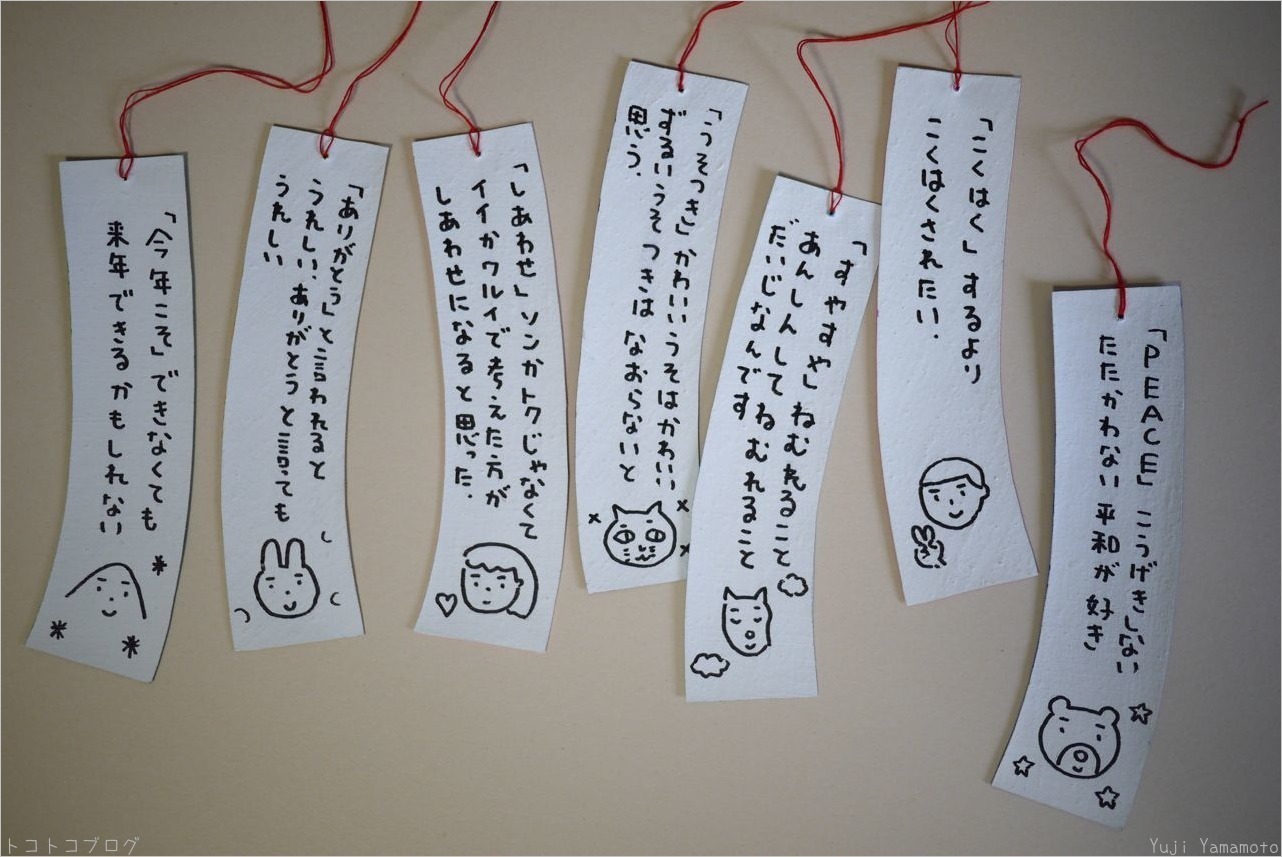 「今年こそ」できなくても
来年できるかもしれない
「ありがとう」と言われると
うれしい。ありがとうと言っても
うれしい
「しあわせ」ソンかトクじゃなくて
イイかワルイで考えた方が
しあわせになると思った.
「うそつき」かわいいうそはかわいい
ずるいうそつきはなおらないと
思う.
「すやすや」ねむれること
あんしんしてねむれること
だいじなんです
「こくはく」するより
こくはくされたい.
「PEACE」こうげきしない
たたかわない平和が好き
トコトコブログ
Yuji Yamamoto